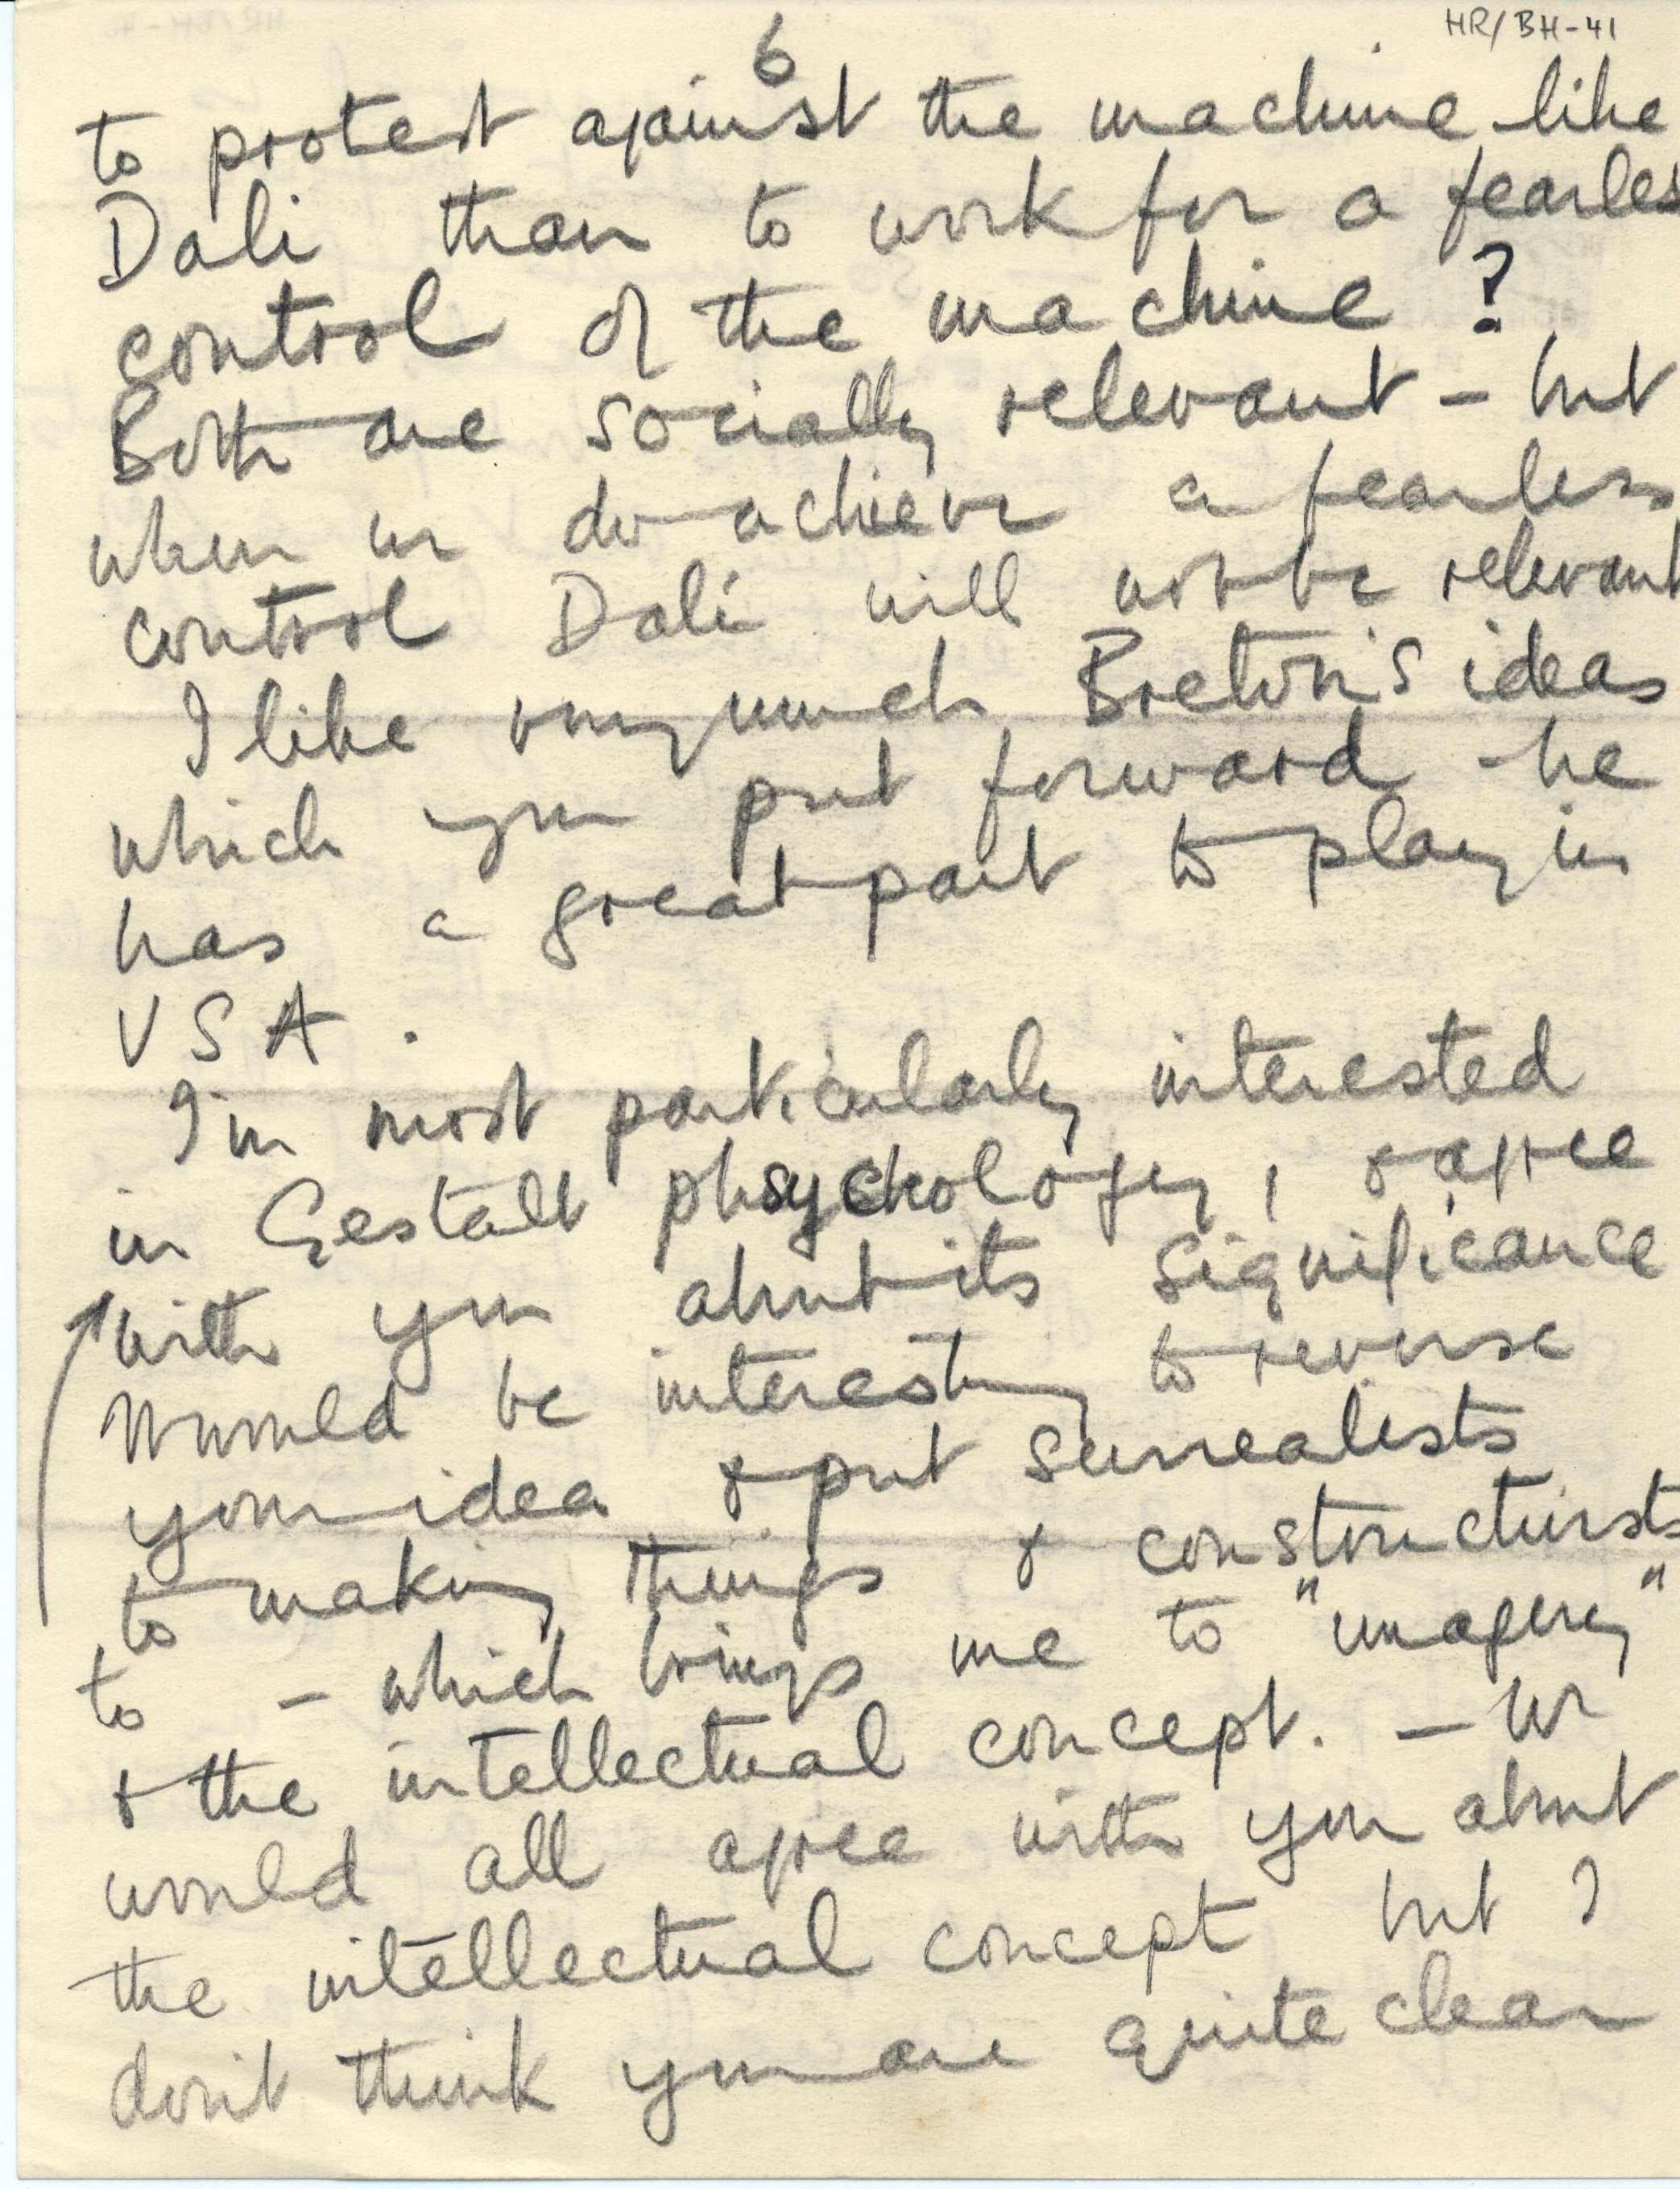 HR/BH-41
6
to protest against the machine like
Dali than to work for a fearless
control of the machine ?
Both are socially relevant - but
when we do achieve a fearless
control Dali will not be relevant
I like very much Breton's ideas
which you put forward - he
has a great part to play in
USA.
I'm most particularly interested
in Gestalt phsychology, & agree
with you about its significance
Would be interesting to reverse
your idea & put surrealists
to making things & constructivists
to - which brings me to "imagery"
& the intellectual concept. - We
would all agree with you about
the intellectual concept but I
don't think you are quite clear